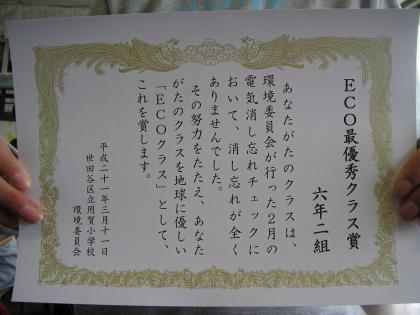 ECO最優秀クラス賞
六年二組
あなたがたのクラスは、
環境委員会が行った2月の
電気消し忘れチェックに
おいて、消し忘れが全く
ありませんでした。
その努力をたたえ、あなた
がたのクラスを地球に優しい
「ECOクラス」として、
これを賞します。
平成二十一年三月十一日
世田谷区立用賀小学校
環境委員会